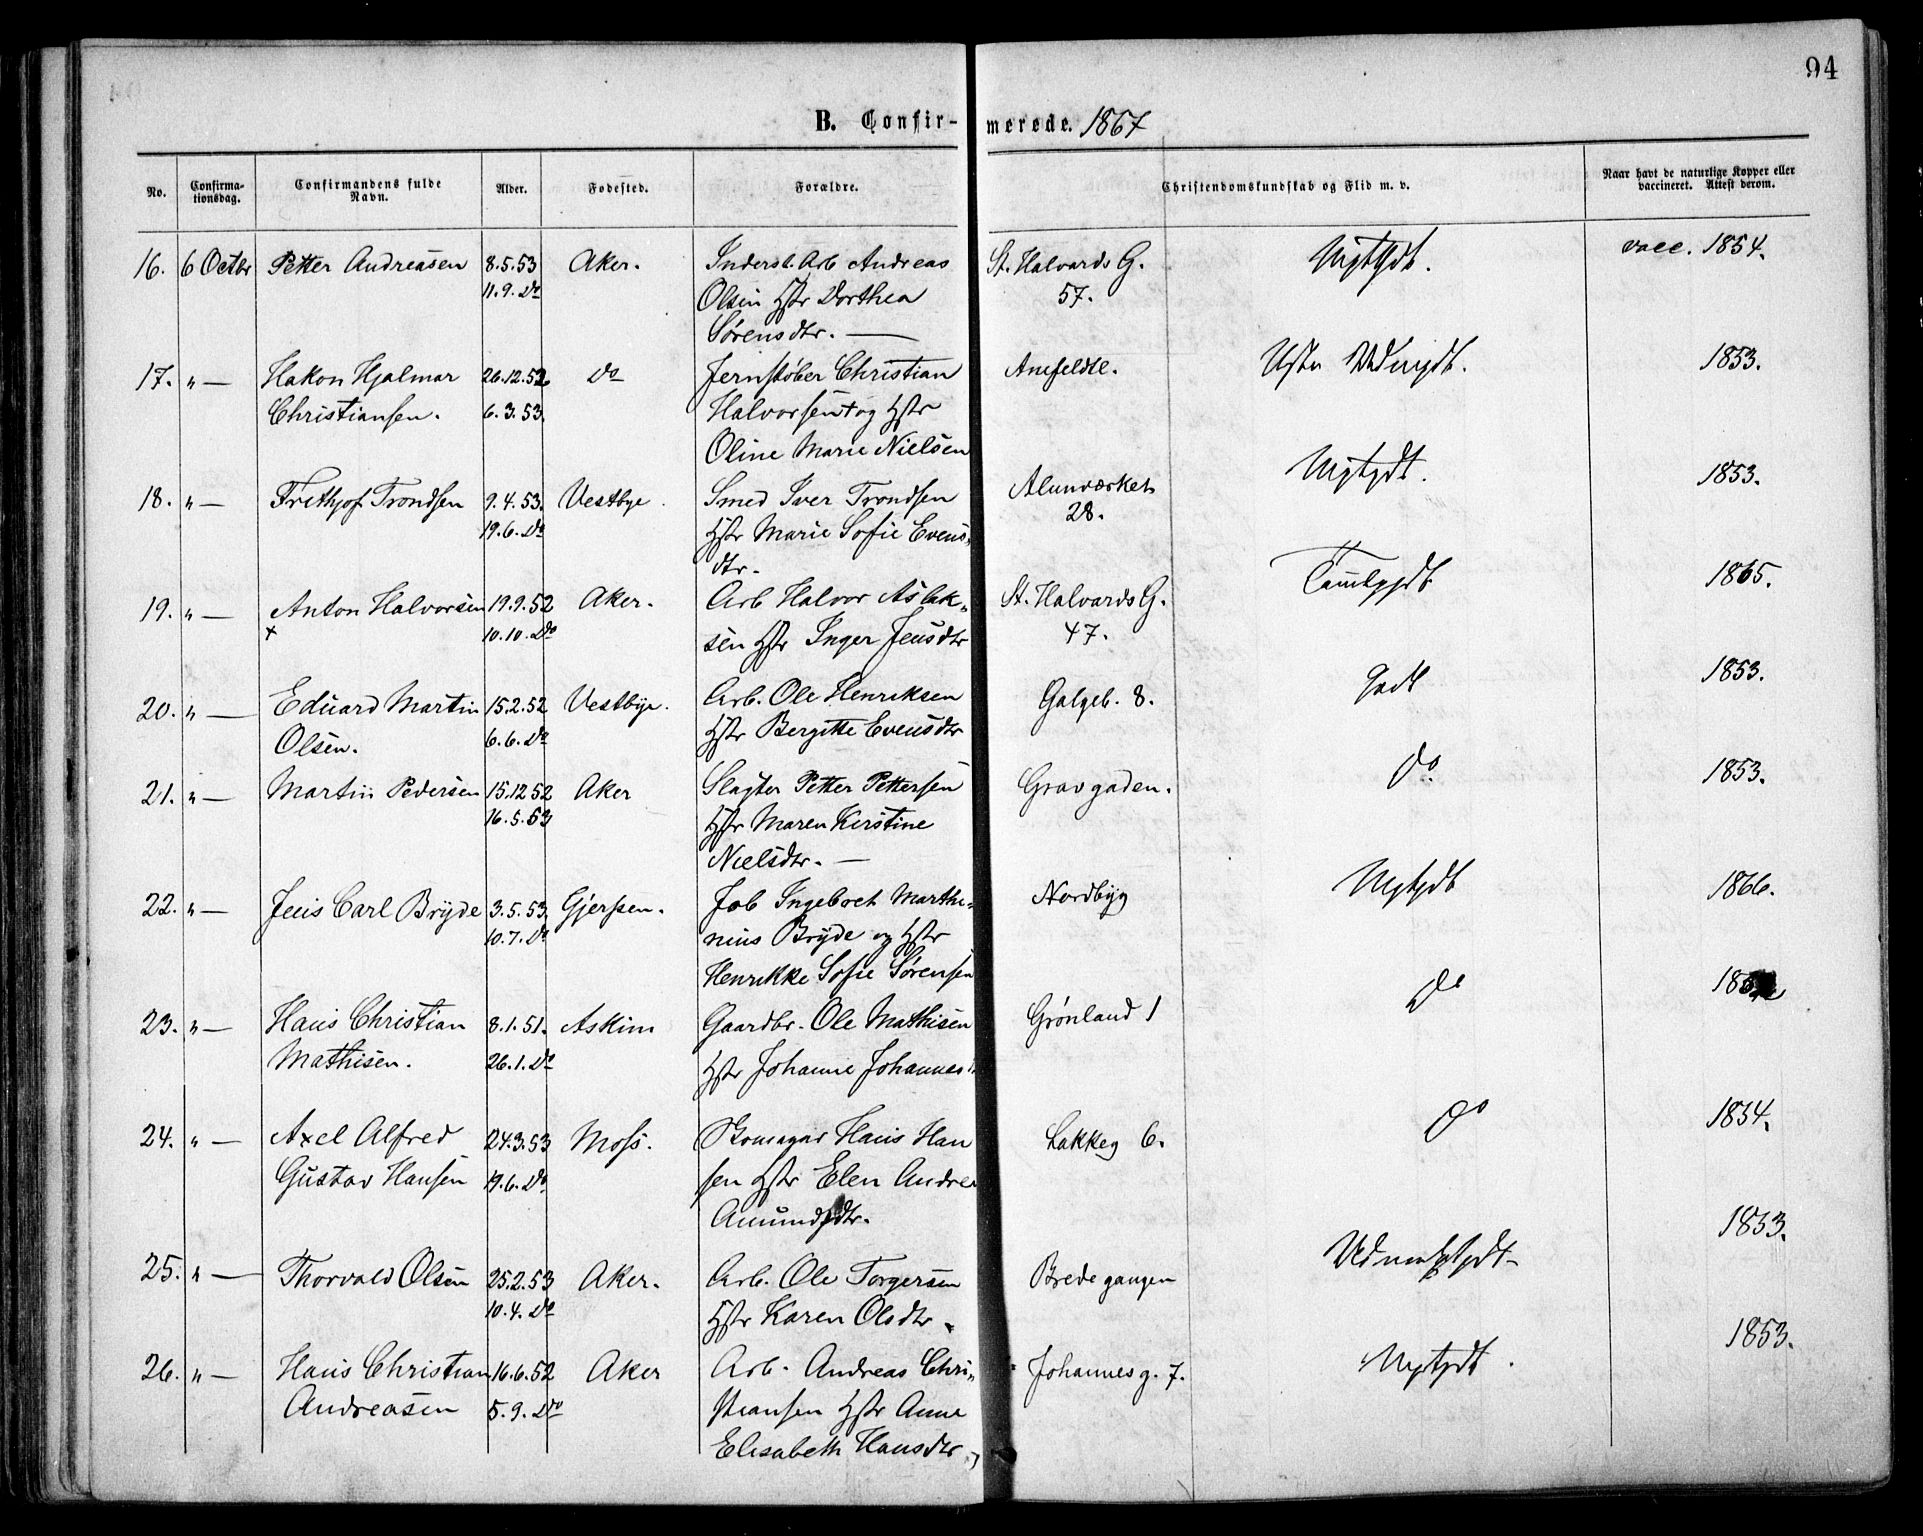 94
B. Confir-merede. 1867
No.
Confirma-
tionsdag.
Confirmandens fulde
Navn.
Alder.
Fødested.
Forældre.
Christendomskundskab og Flid m. v.
Naar havt de naturlige Kopper eller
vaccineret. Attest derom.
16. 6 Octbr Petter Andreasen 8.5.53 Aker. Inderst. Arb Andreas St. Halvards G. Mgtgdt. vacc. 1854.
11.9. Do Olsen Hstr Dorthea 57.
Sørensdtr. —
17. " — Hakon Hjalmar 26.12.52 Do Jernstøber Christian Anefeldtl. 1853.
Christiansen. 6.3.53. Halvorsen † og Hstr
Oline Marie Nielsen
18. " — Frithjof Trondsen 9.4.53. Vestbye. Smed Iver Trondsen Alunværket Mgtgdt. 1853.
19.6. Do Hstr Marie Sofie Evens- 28.
dtr.
19. " — Anton Halvorsen 19.9.52 Aker. Arb Halvor Aslak- St. Halvards G. 1865.
x 10.10. Do sen Hstr Inger Jensdtr 47.
20. " — Eduard Martin 15.2.52 Vestbye. Arb. Ole Henriksen Galgeb. 8. Godt 1853.
Olsen. 6.6. Do Hstr Bergitte Evensdtr
21. " — Martin Pedersen 15.12.52 Aker Slagter Petter Pettersen Gravgaden. Do. 1853.
16.5.53 Hstr Maren Kirstine
Nielsdtr. —
22. " — Jens Carl Bryde 3.5.53. Gjerpen. Job Ingebret Marthi- Nordbyg Mgtgdt 1866.
10.7. Do nius Bryde og Hstr
Henrikke Sofie Sørensen
23. " — Hans Christian 8.1.51. Askim Gaardbr. Ole Mathisen Grønland 1 Do
Mathisen. 26.1. Do Hstr Johanne Johannes
24. " — Axel Alfred 24.3.53 Moss. Hans Han Lakkeg 6. Do 1854.
Gustav Hansen 19.6. Do sen Hstr Elen Andrea
Amundsdtr.
25. " — Thorvald Olsen 25.2.53 Aker. Arb. Ole Torgersen Bredegangen Udmærketgdt 1853.
10.4. Do Hstr Karen Olsdtr.
26. " — Hans Christian 16.6.52 Aker Arb. Andreas Chri- Johannesg. 7. Mgtgdt. 1853.
Andreasen 5.9. Do stiansen Hstr Anne
Elisabeth Hansdtr